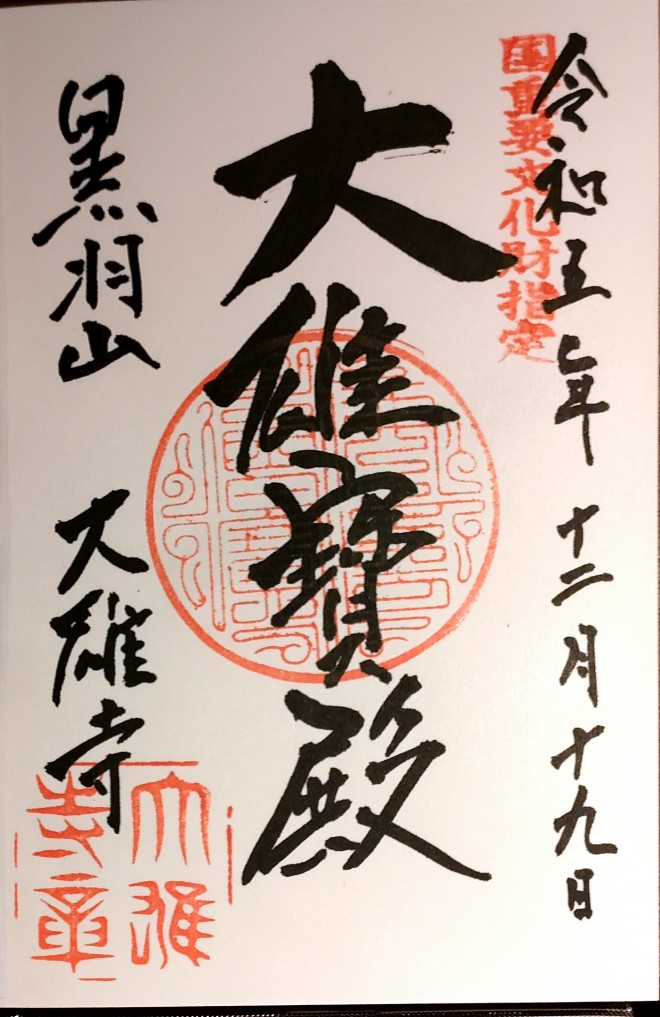 国重要文化財指定
令和五年 十二月十九日
大雄寳殿
黒羽山 大雄寺
大雄
寺章